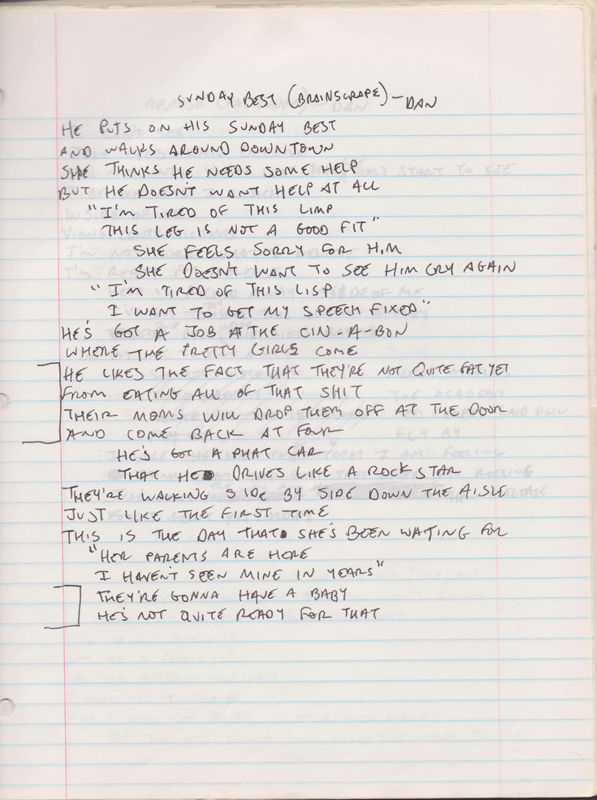 SUNDAY BEST (BRAINSCRAPE) - DAN
HE PUTS ON HIS SUNDAY BEST
AND WALKS AROUND DOWNTOWN
SHE THINKS HE NEEDS SOME HELP
BUT HE DOESN'T WANT HELP AT ALL
"I'M TIRED OF THIS LIMP
THIS LEG IS NOT A GOOD FIT"
SHE FEELS SORRY FOR HIM
SHE DOESN'T WANT TO SEE HIM CRY AGAIN
"I'M TIRED OF THIS LISP
I WANT TO GET MY SPEECH FIXED"
HE'S GOT A JOB A THE CIN-A-BON
WHERE THE PRETTY GIRLS COME
HE LIKES THE FACT THAT THEY'RE NOT QUITE FAT YET
FROM EATING ALL OF THAT SHIT
THEIR MOMS WILL DROP THEM OFF AT THE DOOR
AND COME BACK AT FOUR
HE'S GOT A PHAT CAR
THAT HE DRIVES LIKE A ROCK STAR
THEY'RE WALKING SIDE BY SIDE DOWN THE AISLE
JUST LIKE THE FIRST TIME
THIS IS THE DAY THAT SHE'S BEEN WAITING FOR
"HER PARENTS ARE HERE
I HAVEN'T SEEN MINE IN YEARS"
THEY'RE GONNA HAVE A BABY
HE'S NOT QUITE READY FOR THAT